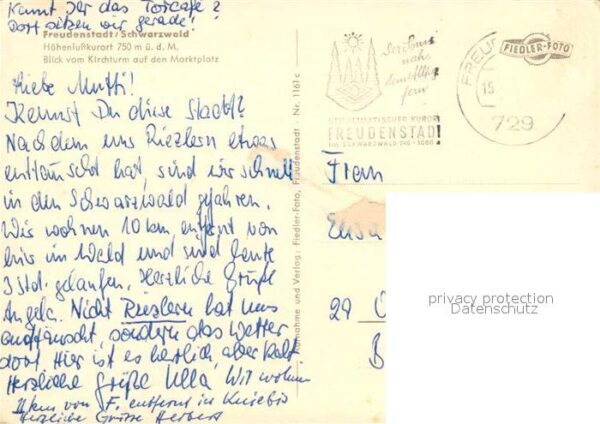 Kennt Ihr das Torcafé?
Dort sitzen wir gerade!
Freudenstadt/Schwarzwald
Höhenluftkurort 750 m ü. d. M.
Blick vom Kirchturm auf den Marktplatz
Liebe Mutti!
Kennst Du diese Stadt?
Nachdem uns Riezlern etwas
enttäuscht hat, sind wir schnell
in den Schwarzwald gefahren.
Wir wohnen 10 km entfernt von
hier im Wald und sind heute
3 Std. gelaufen. Herzliche Grüße
Angela. Nicht Riezlern hat uns
enttäuscht, sondern das Wetter
dort. Hier ist es herrlich, aber kalt.
Herzliche Grüße Ulla Wir wohnen
11 km von F. entfernt in Kniebis
Herzliche Grüsse Herbert
Aufnahme und Verlag: Fiedler-Foto, Freudenstadt - Nr. 1161 c
Der Sonne
nah
dem Alltag
fern
HEILKLIMATISCHER KURORT
FREUDENSTADT
IM SCHWARZWALD 740 - 1000 m
FREUD
15.
729
FIEDLER-FOTO
Frau
29 O
B
privacy protection
Datenschutz